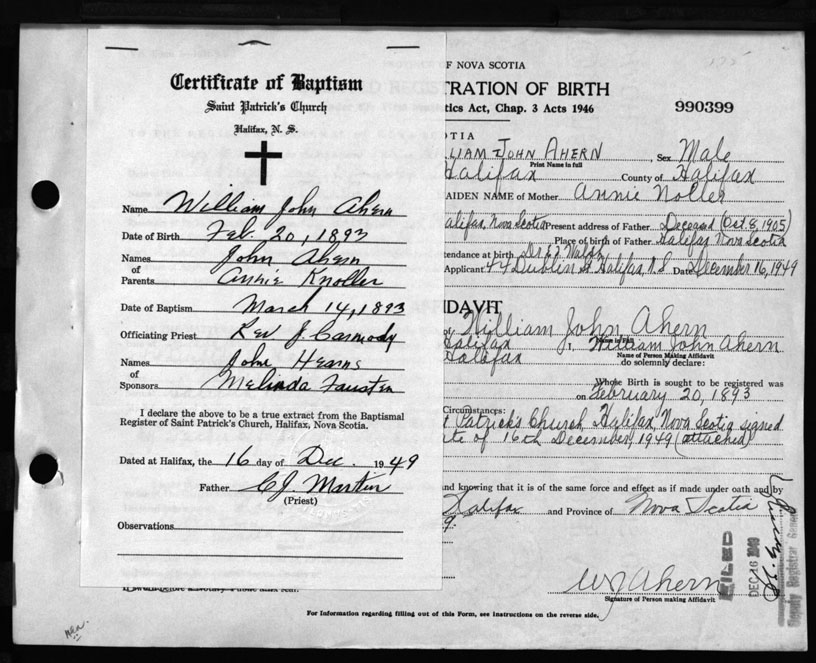 Certificate of Baptism
Saint Patrick's Church
Halifax, N. S.
Name William John Ahern
Date of Birth Feb. 20, 1893
Names of Parents John Ahern
Annie Knoller
Date of Baptism March 14, 1893
Officiating Priest Rev J. Carmody
Names of Sponsors John Hearns
Melinda Fausten
I declare the above to be a true extract from the Baptismal
Register of Saint Patrick's Church, Halifax, Nova Scotia.
Dated at Halifax, the 16 day of Dec. 1949
Father C.J. Martin
(Priest)
Observations
OF NOVA SCOTIA
TRATION OF BIRTH
tics Act, Chap. 3 Acts 1946
990399
OTIA
LLIAM JOHN AHERN Sex Male
Print Name in full
Halifax County of Halifax
AIDEN NAME of Mother Annie Noller
alifax, Nova Scotia Present address of Father Deceased (Oct. 8, 1905)
Place of birth of Father Halifax Nova Scotia
tendance at birth Dr.
Applicant 44 Dublin St Halifax, N.S. Date December 16, 1949
IDAVIT
William John Ahern
Name in Full
Halifax I, William John Ahern
Name of Person Making Affidavit
Halifax do solemnly declare:
Whose Birth is sought to be registered was
on February 20, 1893
Circumstances:
t Patrick's Church, Halifax, Nova Scotia signed
ate of 16th December, 1949 (attached)
nd knowing that it is of the same force and effect as if made under oath and by
Halifax and Province of Nova Scotia
9.
W J Ahern
Signature of Person making Affidavit
FILED
DEC 16 1949
Deputy Registrar General
For Information regarding filling out of this Form, see Instructions on the reverse side.